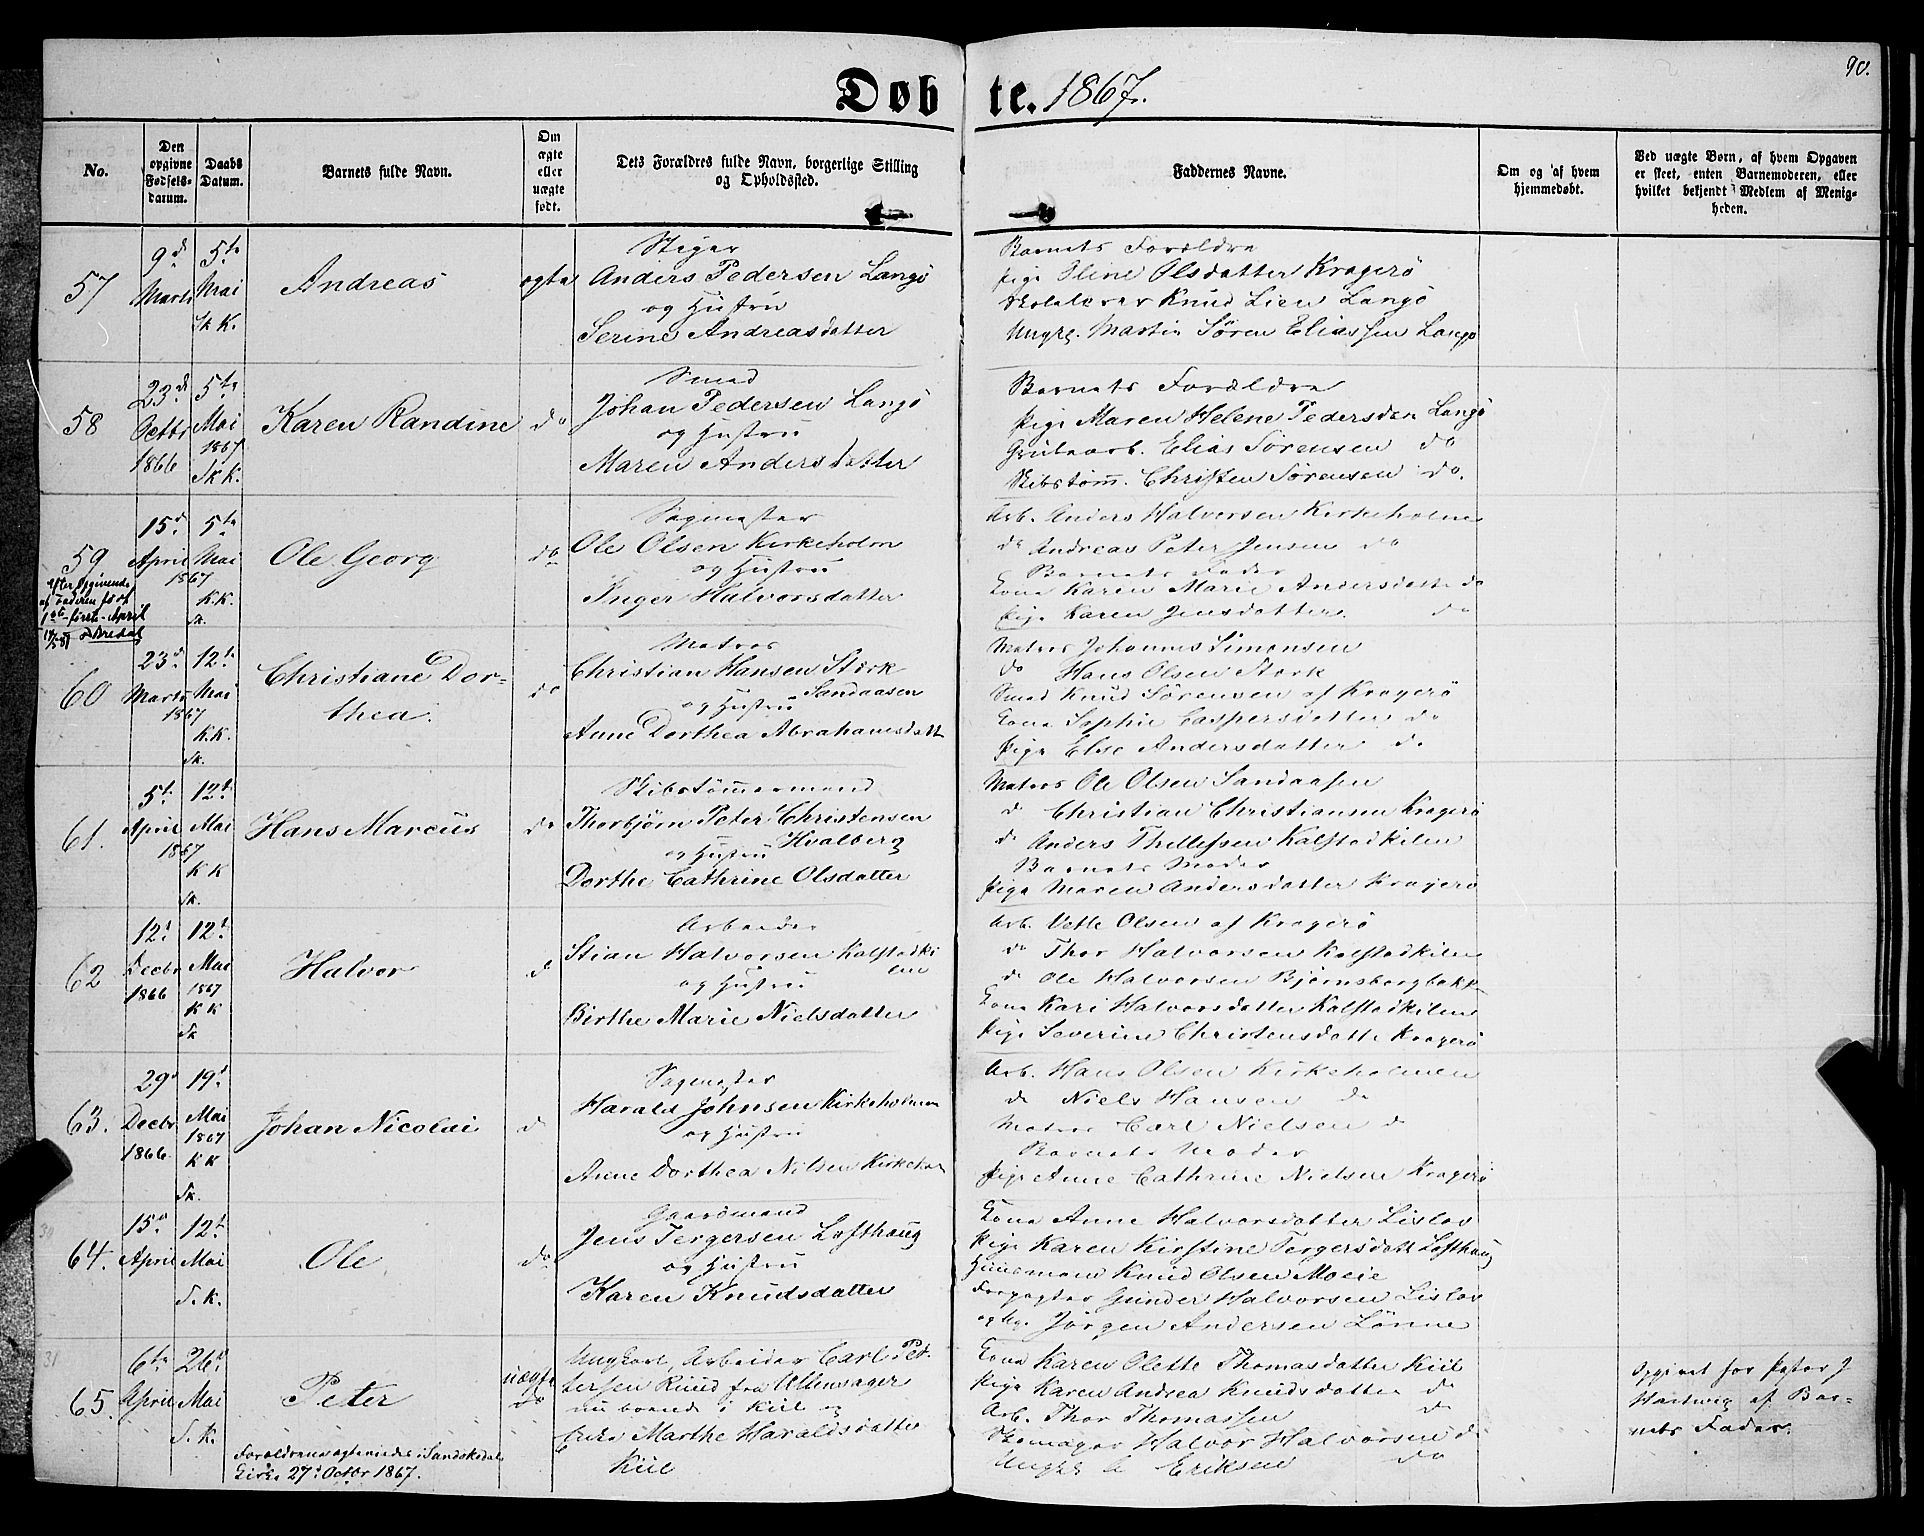 90.
Døbte. 1867.
No.
Den opgivne Fødselsdatum.
Daabs Datum.
Barnets fulde Navn.
Om ægte eller uægte født.
Dets Forældres fulde Navn, borgerlige Stilling og Opholdssted.
Faddernes Navne.
Om og af hvem hjemmedøbt.
Ved uægte Børn, af hvem Opgaven er skeet, enten Barnemoderen, eller hvilket bekjendt Medlem af Menigheden.
57
9d Marts
5te Mai
Sk K.
Andreas
ægte
Stiger
Anders Pedersen Langö
og Hustru
Serine Andreasdatter
Barnets Forældre
Pige Oline Olsdatter Kragerö
Skolelærer Knud Lien Langö
Ungk. Martin Sören Eliassen Langö
58
23d Octbr 1866
5te Mai 1867
Sk K.
Karen Randine
do
Smed
Johan Pedersen Langö
og Hustru
Maren Andersdatter
Barnets Forældre
Pige Maren Helene Pedersdatr Langö
Grubearb. Elias Sørensen do
Skibstöm. Christen Sørensen do.
59
15d April 1867
5te Mai
K.K.
Sk.
Efter Opgivende
af Faderen født
1ste - förste - April
Bredal
Ole Georg
do
Sagmester
Ole Olsen Kirkeholm
og Hustru
Inger Halvorsdatter
Arb. Anders Halvorsen Kirkeholmen
do Andreas Peter Jensen do
Barnets Fader
Kone Karen Marie Andersdatter do
Pige Karen Jensdatter do
60
23d Marts 1867
12te Mai
K.K.
Sk.
Christiane Dor-
thea.
do
Matros
Christian Hansen Stærk
Sandaasen
og Hustru
Anne Dorthea Abrahamsdatt
Matros Johannes Simonsen
do Hans Olsen Stærk
Smed Knud Sørensen af Kragerö
Kone Sophie Caspersdatter do
Pige Else Andersdatter do
61.
5te April 1867
12te Mai
K K
Sk.
Hans Marcus
do
Skibstömmermand
Thorbjörn Peter Christensen
Hvalberg
og Hustru
Dorthe Cathrine Olsdatter
Matros Ole Olsen Sandaasen
do Christian Christiansen Kragerö
do Anders Thellefsen Kalstadkilen
Barnets Moder
Pige Maren Andersdatter Kragerö
62
12t Decbr 1866
12t Mai 1867
K K
Sk
Halvor
do
Arbeider
Stian Halvorsen Kalstadki
len
og Hustru
Birthe Marie Nielsdatter
Arb. Vetle Olsen af Kragerö
do Thor Halvorsen Kalstadkilen
do Ole Halvorsen Bjørnsborgbakk
Kone Kari Halvorsdatter Kalstadkilen
Pige Severine Christensdatte Kragerö
63.
29d Decbr 1866
19d Mai 1867
K K
Sk.
Johan Nicolai
do
Sagmester
Harald Johnsen Kirkeholmen
og Hustru
Anne Dorthea Nilsen Kirkehol
Arb. Hans Olsen Kirkeholmen
do Niels Hansen do
Matros Carl Nielsen do
Barnets Moder
Pige Anne Cathrine Nielsen Kragerö
30
64.
15d April
12t Mai
S. K.
Ole
do
Gaardmand
Jens Tergersen Lofthaug
og Hustru
Karen Knudsdatter
Kone Anne Halvorsdatter Lislöv
Pige Karen Kirstine Tergersdatt Lofthaug
Huusmand Knud Olsen Moeie
Forpagter Gunder Halvorsen Lislöv
Jörgen Andersen Lönne
31
65.
6te April
26d Mai
S. K.
Peter
uægte
do
Ungkarl, Arbeider Carl Pet-
tersen Ruud fra Ullensager
nu boende i Kiil og
Marthe Haraldsdatter
Kiil
Forældrene ægteviede i Sandøkedal
Kirke 27d Octbr 1867.
Kone Karen Olette Thomasdatter Kiil
Pige Karen Andrea Knudsdatter do
Arb. Thor Thomassen do
Skomager Halvor Halvorsen do
Ungk Eriksen do
Opgivet for Pastor J
Hartwig af Bar-
nets Fader.